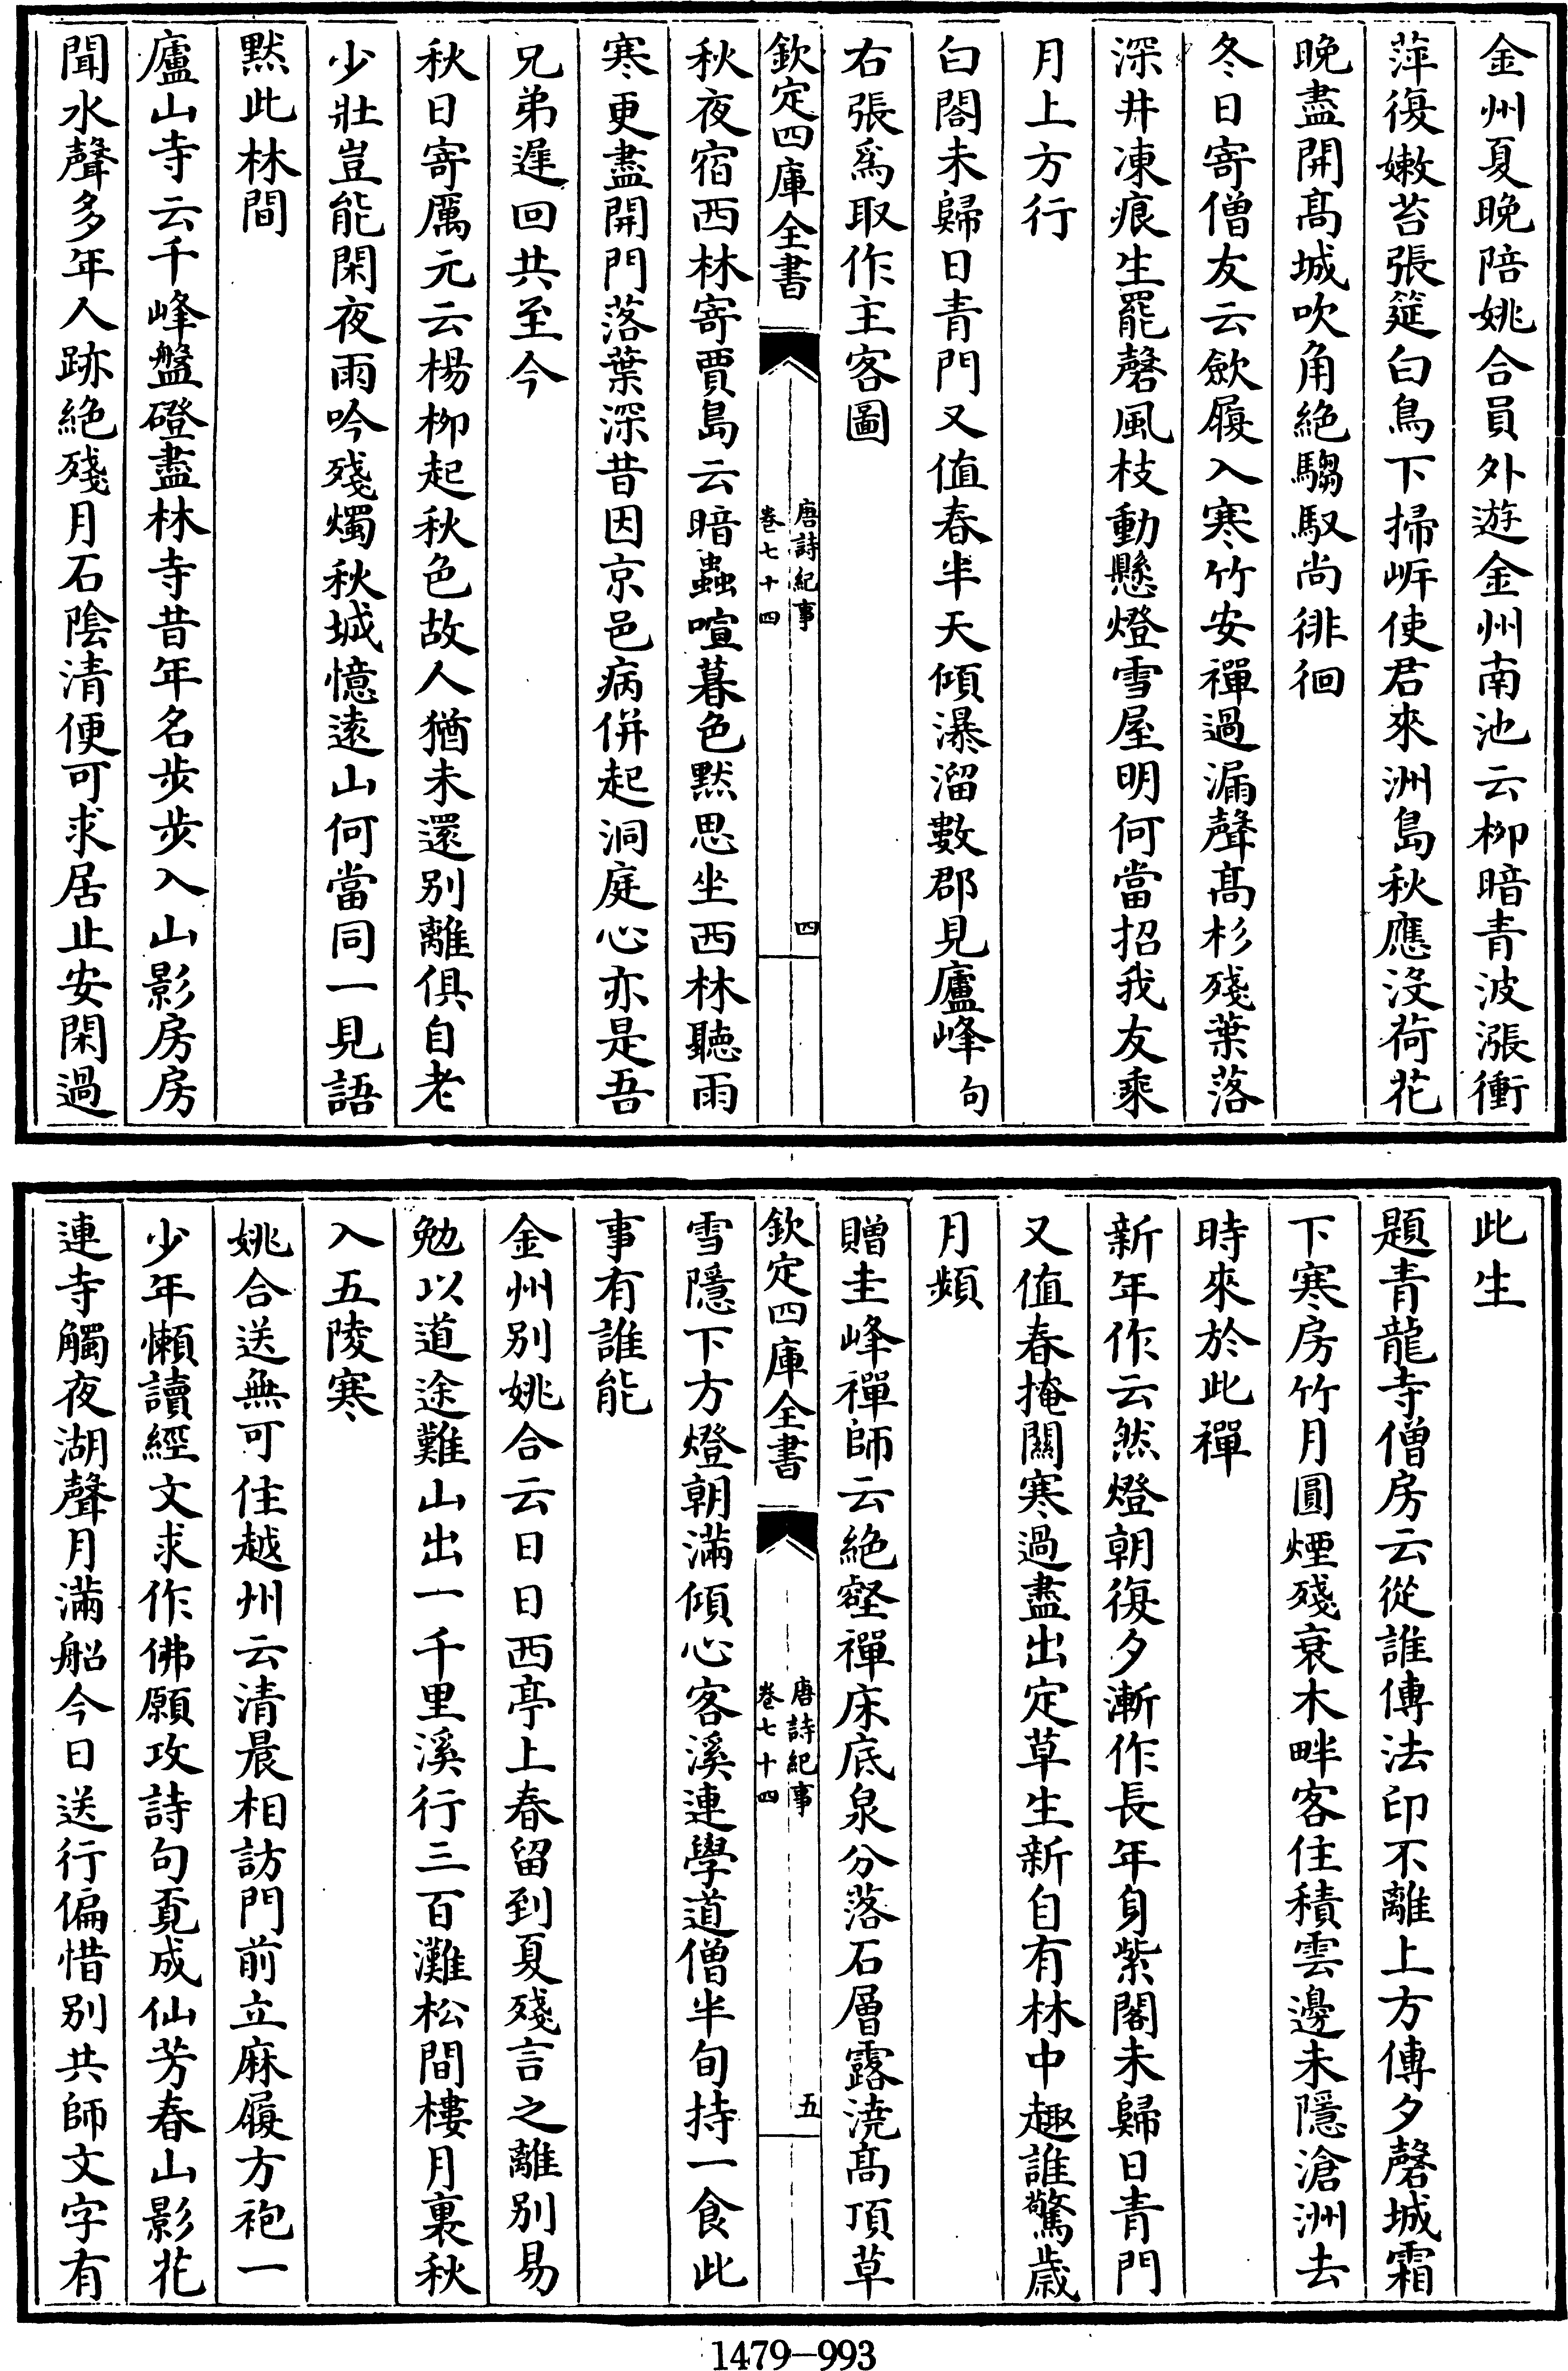 金州夏晚陪姚合員外遊金州南池云柳暗青波漲衝
萍復嫩苔張筵白鳥下掃㟁使君來洲島秋應没荷花
晚盡開髙城吹角絶騶馭尚徘徊
冬日寄僧友云歛履入寒竹安禪過漏聲髙杉殘葉落
深井凍痕生罷磬風枝動懸燈雪屋明何當招我友乘
月上方行
白閣未歸日青門又值春半天傾瀑溜數郡見廬峰句
右張為取作主客圖
欽定四庫全書
唐詩紀事
卷七十四
四
秋夜宿西林寄賈島云暗蟲喧暮色黙思坐西林聽雨
寒更盡開門落葉深昔因京邑病併起洞庭心亦是吾
兄弟遲回共至今
秋日寄厲元云楊柳起秋色故人猶未還别離俱自老
少壯豈能閑夜雨吟殘燭秋城憶逺山何當同一見語
黙此林間
廬山寺云千峰盤磴盡林寺昔年名步步入山影房房
聞水聲多年人跡絶殘月石隂清便可求居止安閑過
此生
題青龍寺僧房云從誰傳法印不離上方傳夕磬城霜
下寒房竹月圓煙殘衰木畔客住積雲邊未隱滄洲去
時來於此禪
新年作云然燈朝復夕漸作長年身紫閣未歸日青門
又值春掩關寒過盡出定草生新自有林中趣誰驚歲
月頻
贈圭峰禪師云絶壑禪床底泉分落石層露澆髙頂草
欽定四庫全書
唐詩紀事
卷七十四
五
雪隱下方燈朝滿傾心客溪連學道僧半旬持一食此
事有誰能
金州别姚合云日日西亭上春留到夏殘言之離别易
勉以道途難山出一千里溪行三百灘松間樓月裏秋
入五陵寒
姚合送無可住越州云清晨相訪門前立麻履方袍一
少年懶讀經文求作佛願攻詩句覔成仙芳春山影花
連寺觸夜湖聲月滿船今日送行偏惜别共師文字有
1479-993